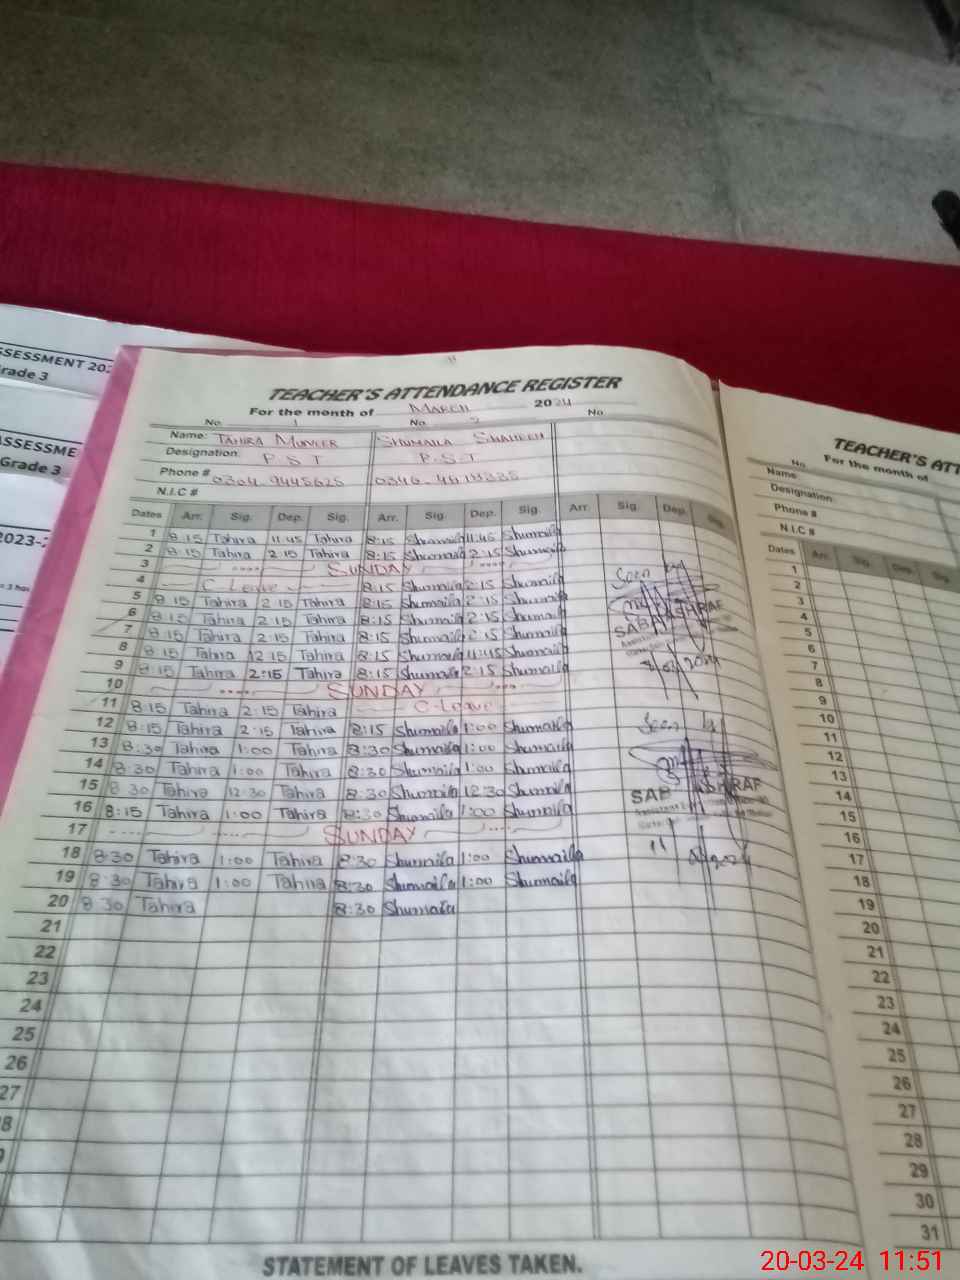 SSESSMENT 202
rade 3
ASSESSME
Grade 3
2023-2
TEACHER'S ATTENDANCE REGISTER
For the month of MARCH 2024
No. 1 No. 2 No.
Name: TAHIRA MUNEER SHUMAILA SHAHEEN
Designation: P.S.T P.S.T
Phone # 0304 9445625 0346
N.I.C #
Dates Arr. Sig. Dep. Sig. Arr. Sig. Dep. Sig. Arr. Sig. Dep. Sig.
1 8:15 Tahira 11:45 Tahira 8:15 Shumaila 11:45 Shumaila
2 8:15 Tahira 2:15 Tahira 8:15 Shumaila 2:15 Shumaila
3 SUNDAY
4 C Leave 8:15 Shumaila 2:15 Shumaila
5 8:15 Tahira 2:15 Tahira 8:15 Shumaila 2:15 Shumaila
6 8:15 Tahira 2:15 Tahira 8:15 Shumaila 2:15 Shumaila
7 8:15 Tahira 2:15 Tahira 8:15 Shumaila 2:15 Shumaila
8 8:15 Tahira 12:15 Tahira 8:15 Shumaila 11:45 Shumaila
9 8:15 Tahira 2:15 Tahira 8:15 Shumaila 2:15 Shumaila
10 SUNDAY
11 8:15 Tahira 2:15 Tahira C-Leave
12 8:15 Tahira 2:15 Tahira 8:15 Shumaila 1:00 Shumaila
13 8:30 Tahira 1:00 Tahira 8:30 Shumaila 1:00 Shumaila
14 8:30 Tahira 1:00 Tahira 8:30 Shumaila 1:00 Shumaila
15 8:30 Tahira 12:30 Tahira 8:30 Shumaila 12:30 Shumaila
16 8:15 Tahira 1:00 Tahira 8:30 Shumaila 1:00 Shumaila
17 SUNDAY
18 8:30 Tahira 1:00 Tahira 8:30 Shumaila 1:00 Shumaila
19 8:30 Tahira 1:00 Tahira 8:30 Shumaila 1:00 Shumaila
20 8:30 Tahira 8:30 Shumaila
21
22
23
24
25
26
27
8
Seen
SABA ASHRAF
Seen
SAB ASHRAF
STATEMENT OF LEAVES TAKEN.
TEACHER'S ATT
No. For the month of
Name:
Designation:
Phone #
N.I.C #
Dates Arr. Sig. Dep. Sig.
1
2
3
4
5
6
7
8
9
10
11
12
13
14
15
16
17
18
19
20
21
22
23
24
25
26
27
28
29
30
31
20-03-24 11:51